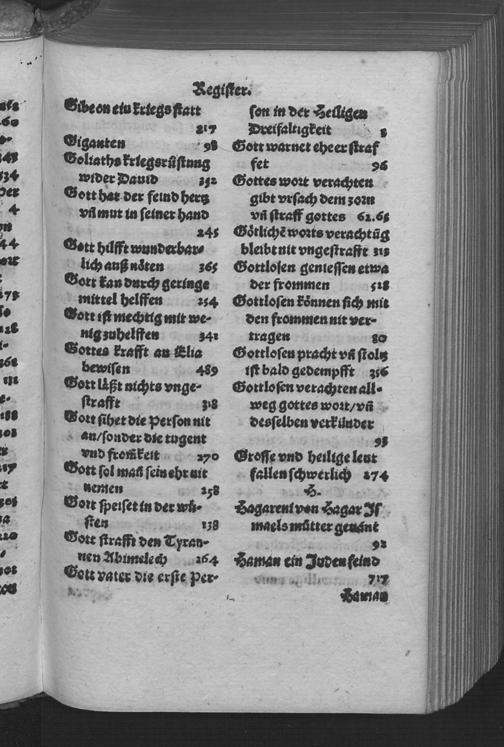 Register.
Gibeon ein kriegs statt
217
Giganten 98
Goliaths kriegsrüstung
wider Dauid 252
Gott hat der feind hertz
vñ mut in seiner hand
245
Gott hilfft wunderbar-
lich auß nöten 365
Gott kan durch geringe
mittel helffen 254
Gott ist mechtig mit we-
nig zuhelffen 342
Gottes krafft an Elia
bewisen 489
Gott läßt nichts vnge-
strafft 318
Gott sihet die Person nit
an/sonder die tugent
vnd from̃keit 270
Gott sol mañ sein ehr nit
nemen 258
Gott speiset in der wü-
sten 138
Gott strafft den Tyran-
nen Abimelech 264
Gott vater die erste Per-
son in der Heiligen
Dreifaltigkeit 8
Gott warnet ehe er straf
fet 96
Gottes wort verachten
gibt vrsach dem zorn
vñ straff gottes 62.65
Götliche worts verachtũg
bleibt nit vngestrafft 313
Gottlosen geniessen etwa
der frommen 528
Gottlosen können sich mit
den frommen nit ver-
tragen 80
Gottlosen pracht vñ stoltz
ist bald gedempfft 356
Gottlosen verachten all-
weg gottes wort/vñ
desselben verkünder
93
Grosse vnd heilige leut
fallen schwerlich 274
H.
Hagareni von Hagar Js
maels můtter genañt
92
Haman ein Juden feind
717
Haman